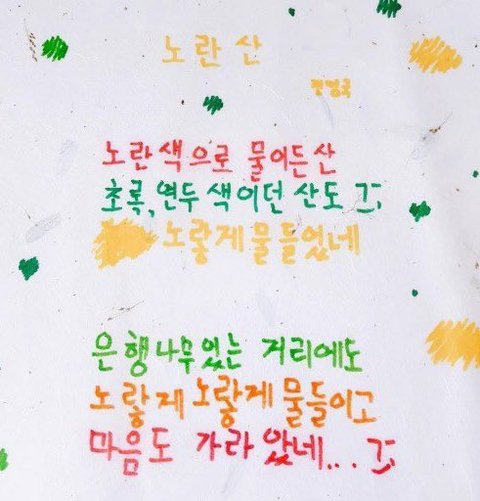 노란 산
노란색으로 물이든산
초록, 연두색이던 산도
노랗게 물들었네
은행나무있는 거리에도
노랗게 노랗게 물들이고
마음도 가라앉네...